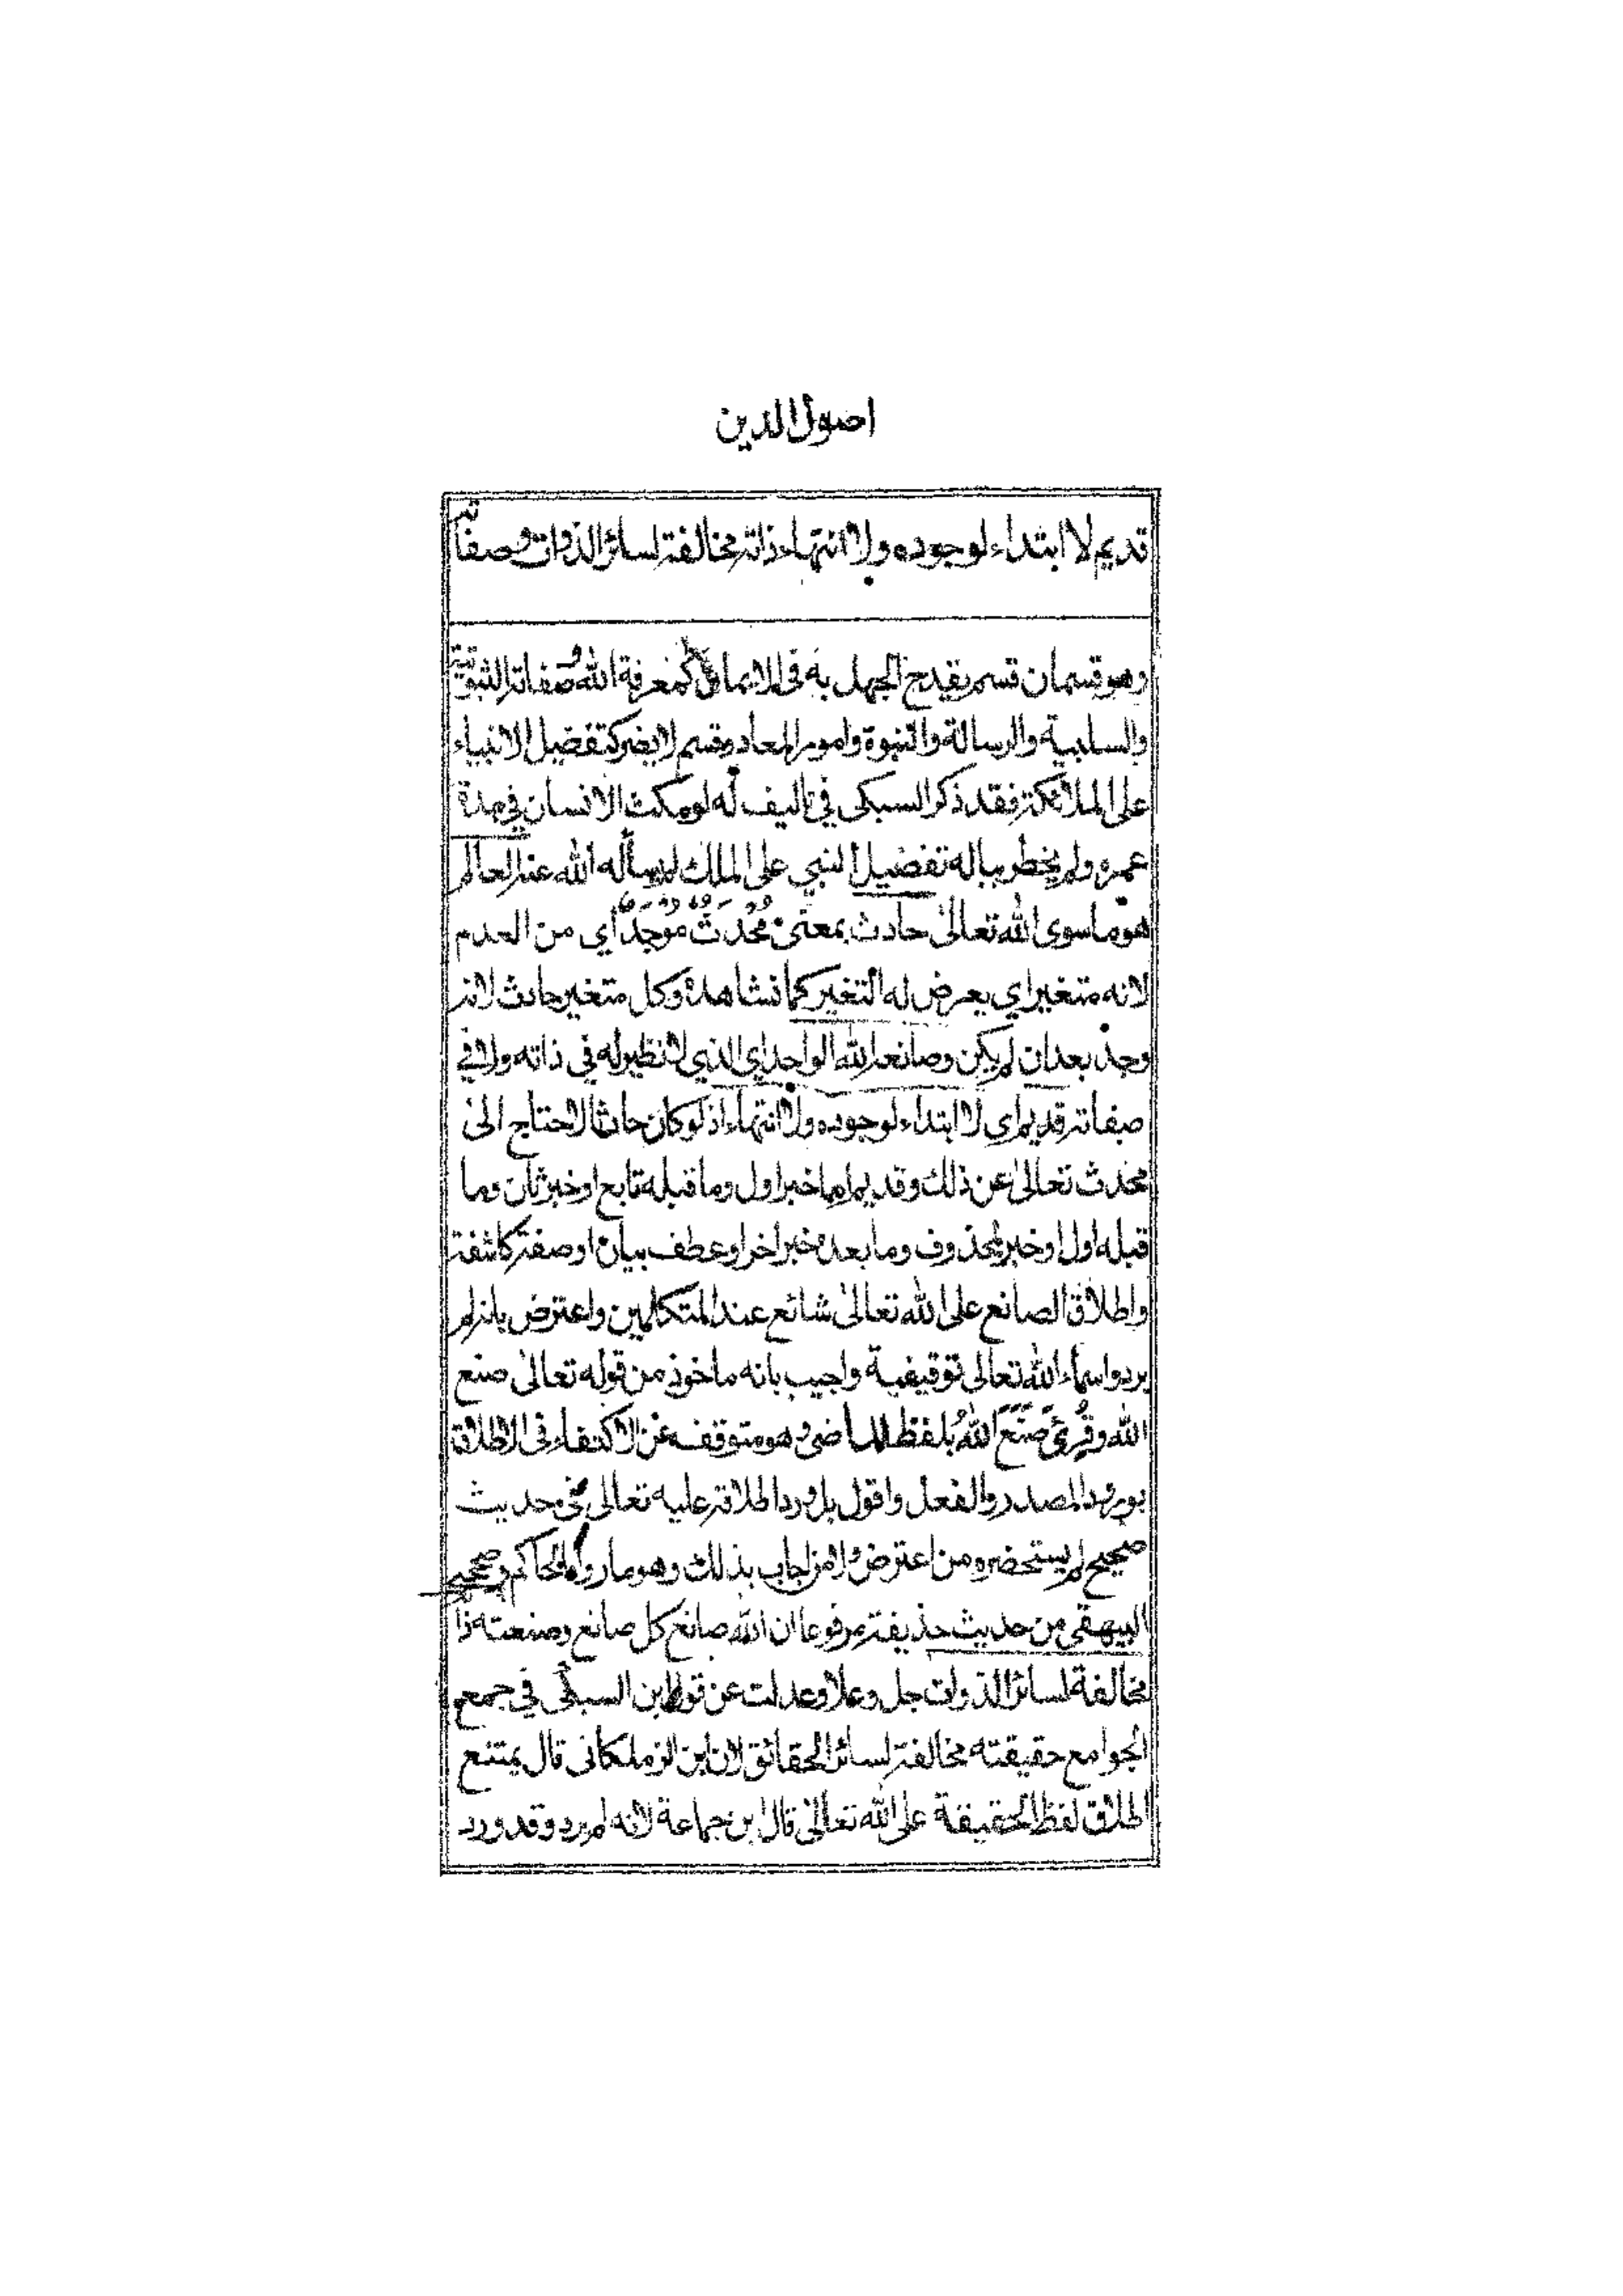 اصول الدين
قديم لا ابتداء لوجوده ولا انتهاء ذاته مخالفة لسائر الذوات وصفاته
وهو قسمان قسم يقدح الجهل به فى الايمان كمعرفة الله وصفاته الثبوتية
والسلبية والرسالة والنبوة وامور المعاد وقسم لا يضر كتفضيل الانبياء
على الملائكة فقد ذكر السبكى في تاليف له لو مكث الانسان في مدة
عمره ولم يخطر بباله تفضيل النبي على الملك لم يسأله الله عنه العالم
هو ما سوى الله تعالىٰ حادث بمعنىٰ مُحْدَثٌ مُوجَدٌ اي من العدم
لانه متغير اي يعرض له التغير كما نشاهده وكل متغير حادث لانه
وجد بعد ان لم يكن وصانعه الله الواحد اي الذي لا نظير له في ذاته ولا في
صفاته قديم اي لا ابتداء لوجوده ولا انتهاء اذ لو كان حادثا لاحتاج الىٰ
محدث تعالىٰ عن ذلك وقديم اما خبر اول وما قبله تابع او خبر ثان وما
قبله اول او خبر لمحذوف وما بعده خبر اخر او عطف بيان او صفة كاشفة
واطلاق الصانع على الله تعالىٰ شائع عند المتكلمين واعترض بانه لم
يرد واسماء الله تعالى توقيفية واجيب بانه ماخوذ من قوله تعالىٰ صنع
الله وقُرِئَ صَنَعَ اللهُ بلفظ الماضى وهو متوقف عن الاكتفاء فى الاطلاق
بورود المصدر والفعل واقول بل ورد اطلاقه عليه تعالى في حديث
صحيح لم يستحضره من اعترض ولا من اجاب بذلك وهو ما رواه الحاكم وصححه
البيهقى من حديث حذيفة مرفوعا ان الله صانع كل صانع وصنعته ذا
مخالفة لسائر الذوات جل وعلا وعدلت عن قول ابن السبكى في جمع
الجوامع حقيقته مخالفة لسائر الحقائق لان ابن الزملكانى قال يمتنع
اطلاق لفظ الحقيقة على الله تعالىٰ قال ابن جماعة لانه لم يرد وقد ورد